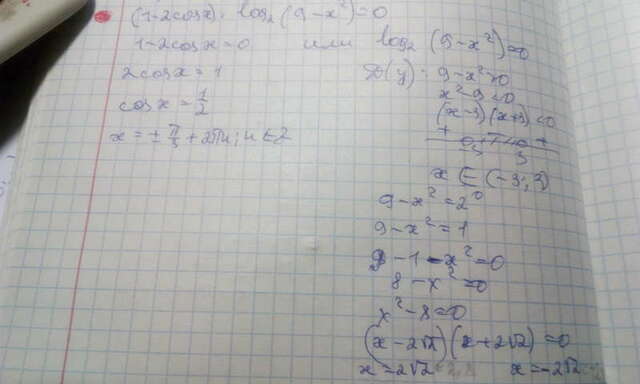 (1-2cosx)·log₂(9-x²)=0
1-2cosx=0 или log₂(9-x²)=0
2cosx=1
cosx=1/2
x=±π/3+2πn; n∈Z
D(y): 9-x²>0
x²-9<0
(x-3)(x+3)<0
+ - +
-3 3
x∈(-3;3)
9-x²=2⁰
9-x²=1
9-1-x²=0
8-x²=0
x²-8=0
(x-2√2)(x+2√2)=0
x=2√2 x=-2√2